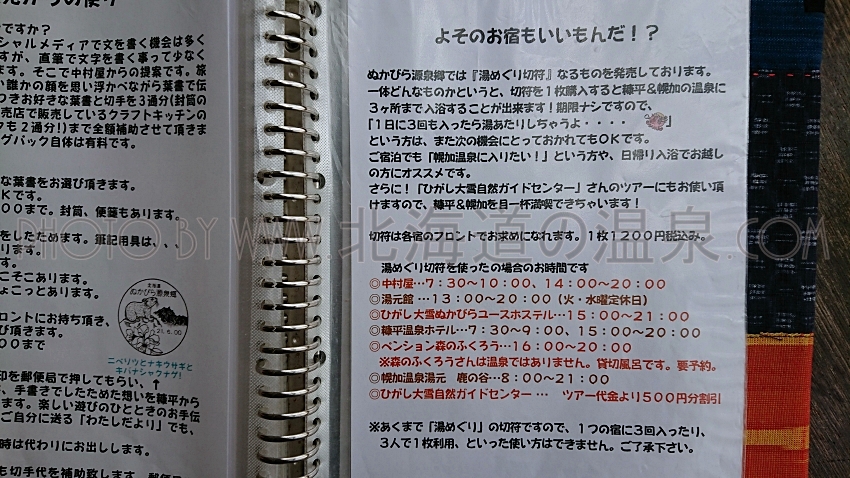 ですか？
シャルメディアで文を書く機会は多く
すが、直筆で文字を書く事って少なく
ます。そこで中村屋からの提案です。旅
い誰かの顔を思い浮かべながら葉書で伝
つきお好きな葉書と切手を3通分(封筒の
売店で販売しているクラフトキッチンの
クも2通分!)まで全額補助させて頂きま
グバック自体は有料です。
な葉書をお選び頂きます。
ＯＫです。
００まで。封筒、便箋もあります。
をしたためます。筆記用具は、、、
ります。
す。
こそこあります。
ょこっとあります。
ロントにお持ち頂き、
きます。
００まで
北海道
ぬかびら源泉郷
ニペソツとナキウサギと
キバナシャクナゲ！
印を郵便局で押してもらい、↑
、手書きでしたためた想いを糠平から
ます。楽しい遊びのひとときのお手伝
ご自分に送る「わたしだより」でも、
時は代わりにお出しします。
も切手代を補助致します。郵便局
よそのお宿もいいもんだ！？
ぬかびら源泉郷では『湯めぐり切符』なるものを発売しております。
一体どんなものかというと、切符を１枚購入すると糠平＆幌加の温泉に
３ヶ所まで入浴することが出来ます！期限ナシですので、
「１日に３回も入ったら湯あたりしちゃうよ・・・・ 」
という方は、また次の機会にとっておかれてもＯＫです。
ご宿泊でも「幌加温泉に入りたい！」という方や、日帰り入浴でお越し
の方にオススメです。
さらに！「ひがし大雪自然ガイドセンター」さんのツアーにもお使い頂
けますので、糠平＆幌加を目一杯満喫できちゃいます！
切符は各宿のフロントでお求めになれます。１枚１２００円税込み。
湯めぐり切符を使ったの場合のお時間です
◎中村屋…７：３０～１０：００、１４：００～２０：００
◎湯元館…１３：００～２０：００（火・水曜定休日）
◎ひがし大雪ぬかびらユースホステル…１５：００～２１：００
◎糠平温泉ホテル…７：３０～９：００、１５：００～２０：００
◎ペンション森のふくろう…１６：００～２０：００
※森のふくろうさんは温泉ではありません。貸切風呂です。要予約。
◎幌加温泉湯元 鹿の谷…８：００～２１：００
◎ひがし大雪自然ガイドセンター … ツアー代金より５００円分割引
※あくまで「湯めぐり」の切符ですので、１つの宿に３回入ったり、
３人で１枚利用、といった使い方はできません。ご了承下さい。
PHOTO BY WWW.北海道の温泉.COM